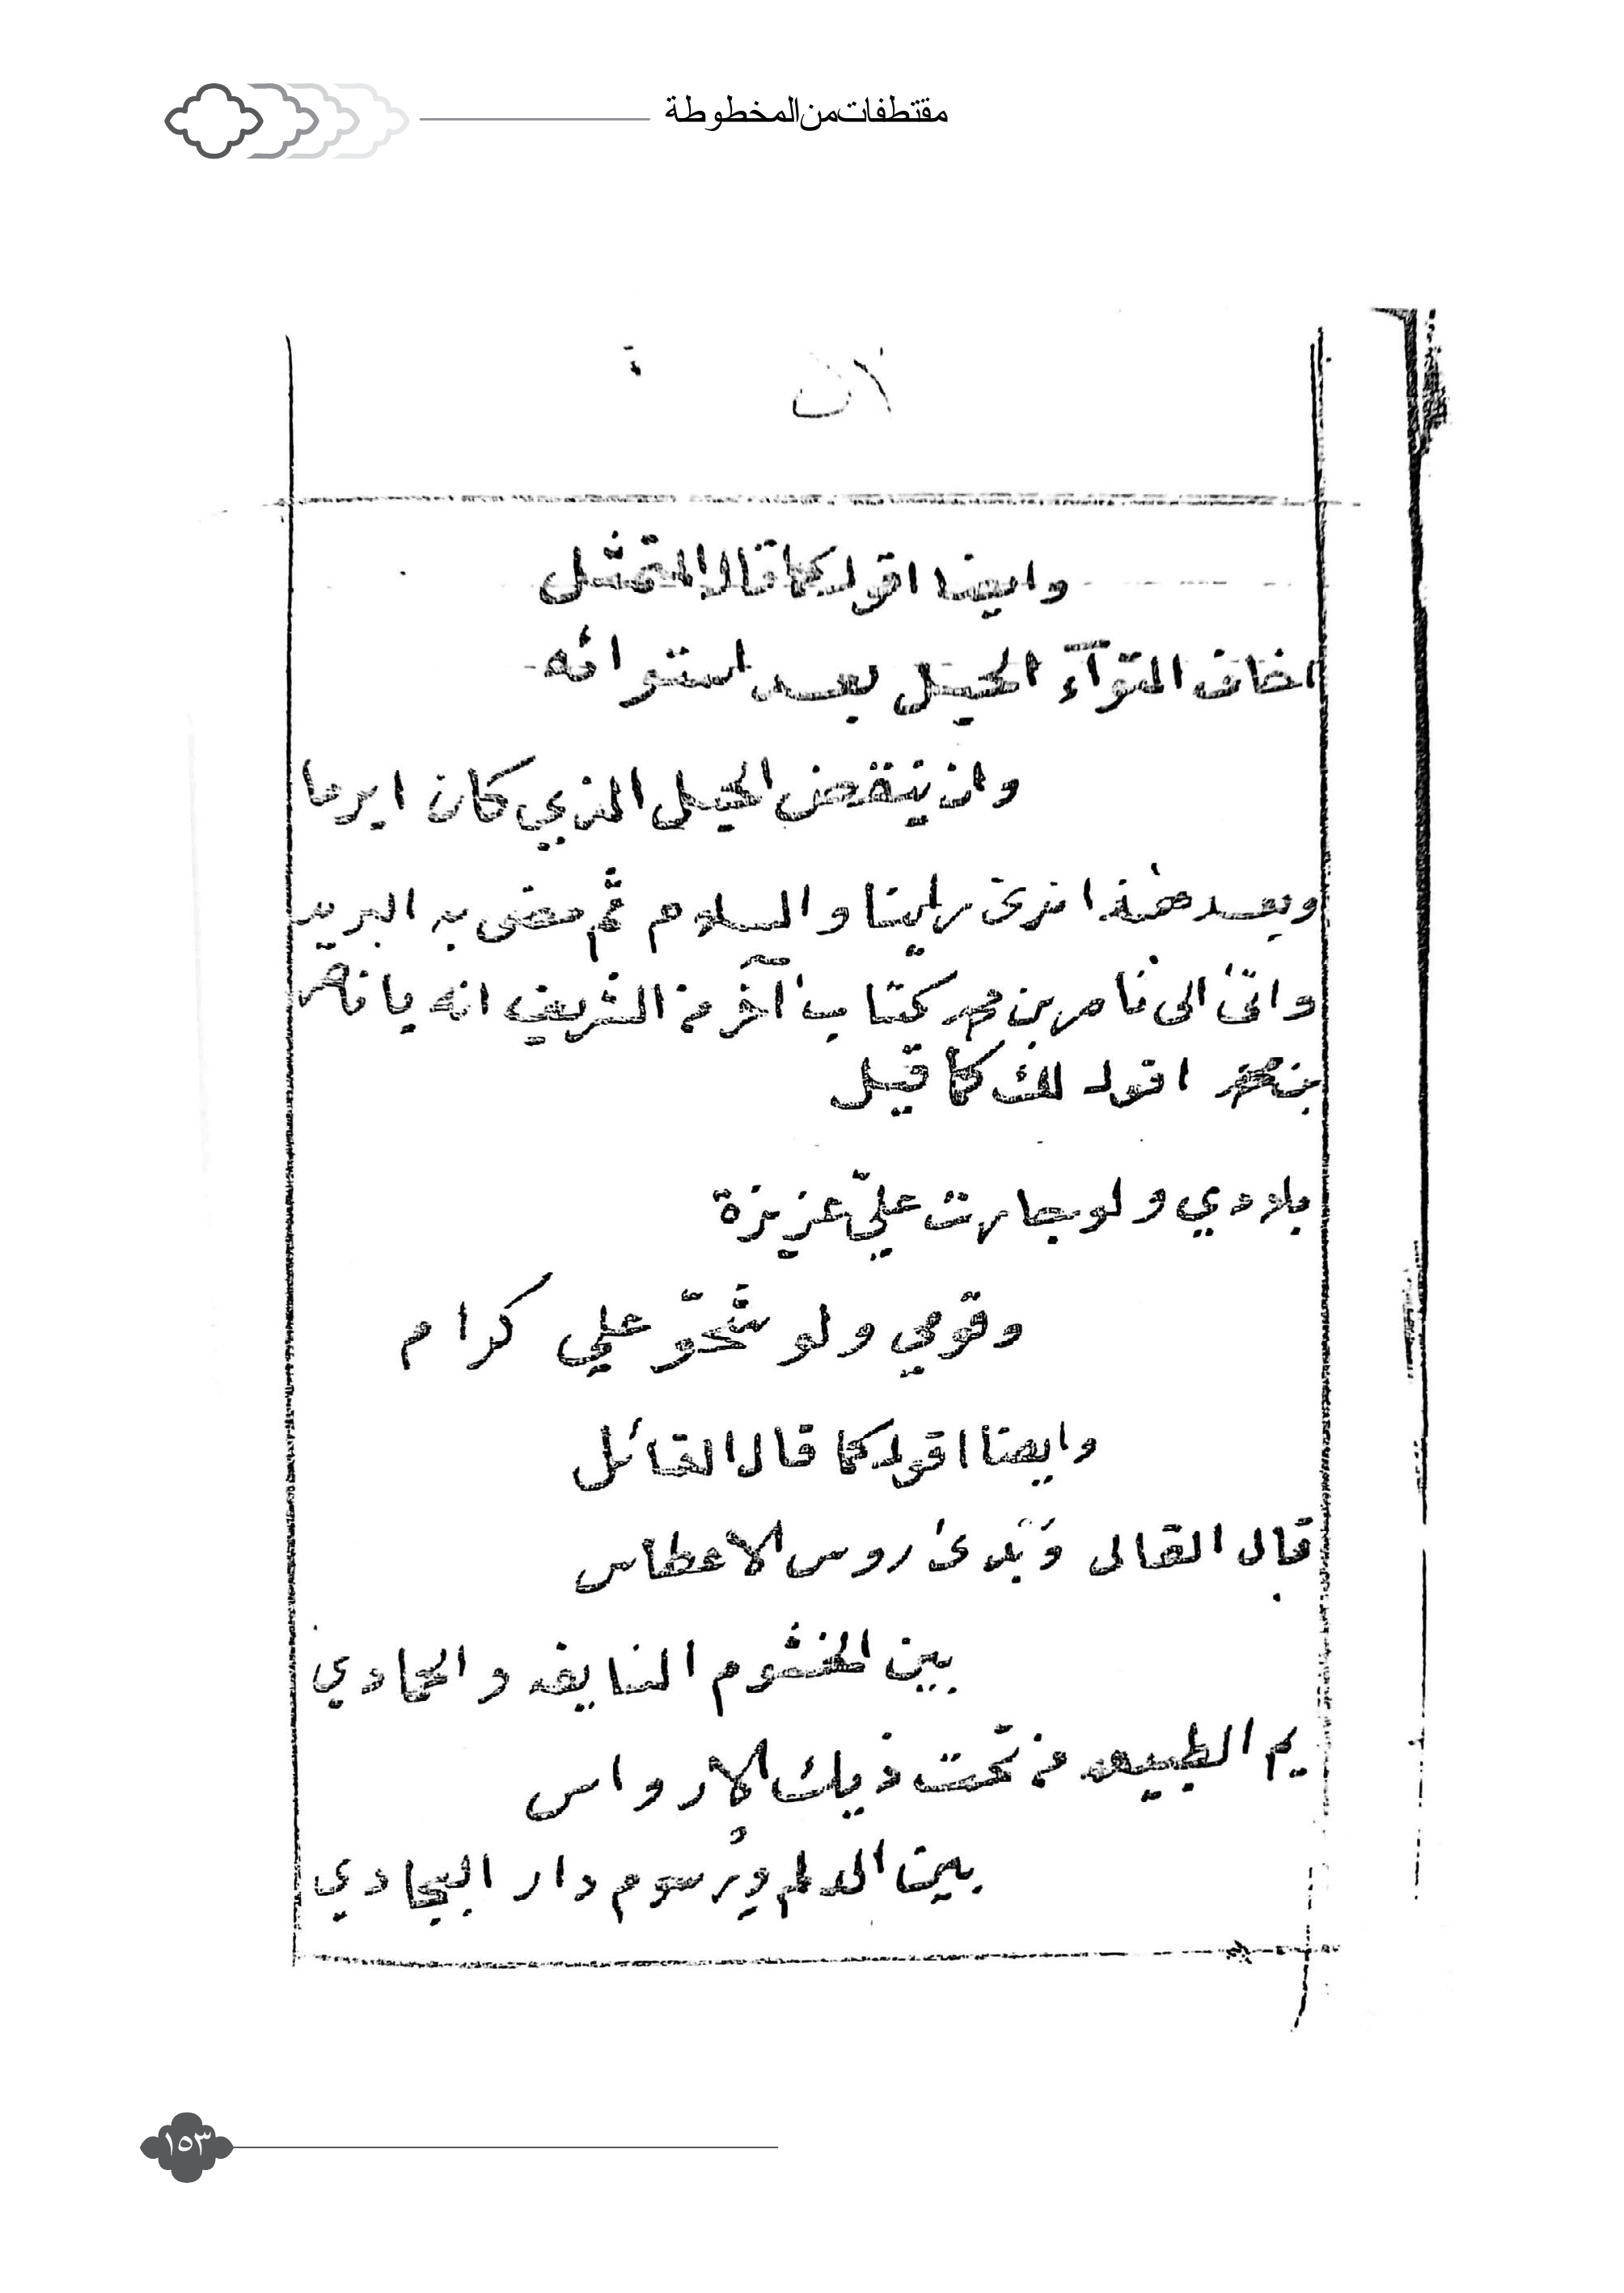 مقتطفات من المخطوطة
وايضا اقول كما قال المتمثل
اخاف التوآء الحبل بعد استوائه
وان ينقض الحبل الذي كان ابرما
وبعد هذه انرى راينا والسلام ثم مضى به البريد
واتى الى ناصر بن محمد كتاب آخر من الشريف انه يا ناصر
بن محمد اقول لك كما قيل
بلادي ولو جارت عليّ عزيزة
وقومي ولو شحّو علي كرام
وايضا اقول كما قال القائل
قال القالى وَبْدى روس الاعطاس
بين الخشوم النايفه والحمادي
يم الطبيعه من تحت ذيك الارواس
بين الدلم ورسوم دار البجادي
١٥٣